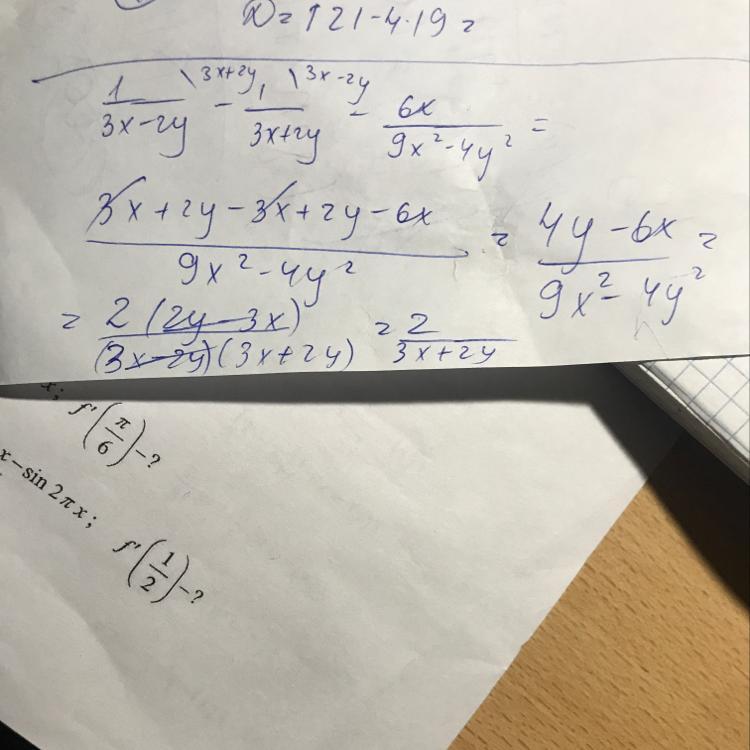 D = 121 - 4 · 19 =
1/(3x-2y) \3x+2y - 1/(3x+2y) \3x-2y - 6x/(9x²-4y²) =
(3x+2y-3x+2y-6x)/(9x²-4y²) = (4y-6x)/(9x²-4y²) =
= 2(2y-3x)/((3x-2y)(3x+2y)) = 2/(3x+2y)
x; f'(π/6)-?
x-sin 2πx; f'(1/2)-?